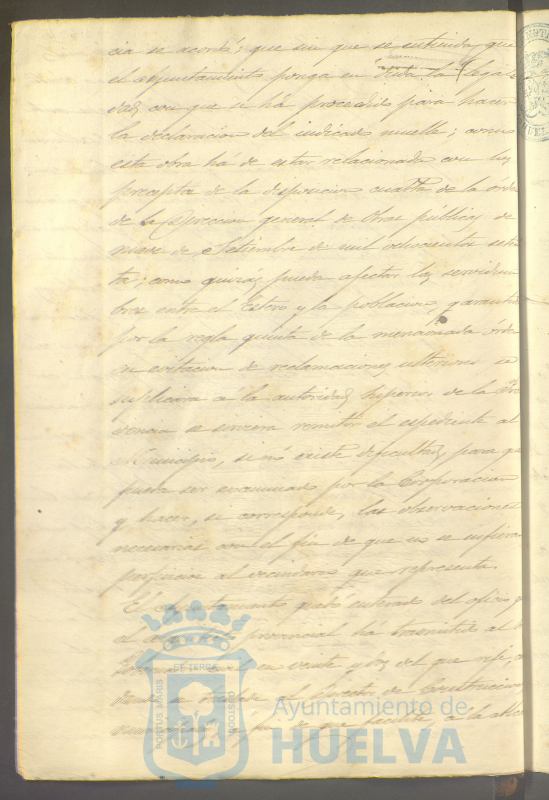 cia se acordó; que sin que se entienda que
el Ayuntamiento ponga en duda la legali
dad con que se há procedido para hacer
la declaracion del indicado muelle; como
esta obra há de estar relacionada con los
preceptos de la disposicion cuarta de la órden
de la Direccion general de Obras públicas de
nueve de Setiembre de mil ochocientos seten
ta; como quizás pueda afectar las servidum
bres entre el Estero y la poblacion, garantida
por la regla quinta de la mencionada órden
en evitacion de reclamaciones ulteriores, se
suplicára á la autoridad superior de la Pro
vincia se sirviera remitir el espediente al
Municipio, si nó existe dificultad, para que
fuera ser examinado por la Corporacion
y hacer, si corresponde, las observaciones
necesarias con el fin de que no se infieran
perjuicios al vecindario que representa.
El Ayuntamiento quedó enterado del oficio q
al provincial há trasmitido al
en veinte y dos del que rije,
al Director de Construcciones
fin de que facilite, á la Alca
PORTUS MARIS
ET TERRÆ
CUSTODIA
Ayuntamiento de
HUELVA